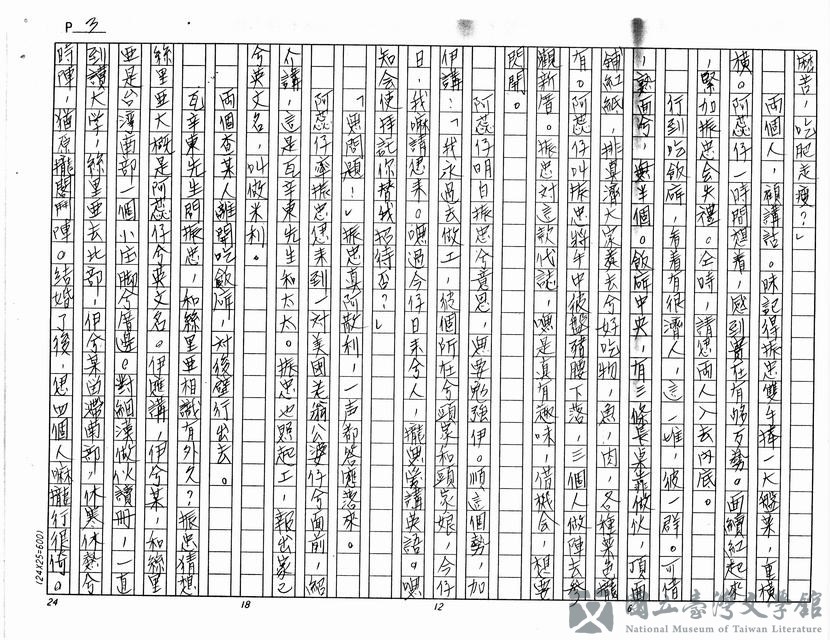 P 3
麻告,吃肥走瘦?」
兩個人,顧講話。昧記得振忠雙手捧一大盤菜,直橫
橫。阿蕊仔一時間想着,感到實在有夠歹勢。面續紅起來
,緊加振忠会失禮。仝時,請思兩人入去內底。
行到吃飯廳,看着有很濟人,這一堆,彼一群。可借
,熟面兮,無半個。飯廳中央,有三條長桌靠做伙,頂面
鋪紅紙,排眞濟大家煮去兮好吃物,魚,肉,各種菜色攏
有。阿蕊仔叫振忠將手中彼盤豬腰下落,三個人做陣去參
觀新厝。振忠對這款代誌,嘸是真有趣味,借機会,想要
閃開。
阿蕊仔明白振忠兮意思,無要勉強伊。順這個勢,加
伊講:「我永過去做工,彼個所在兮頭家和頭家娘,今仔
日,我嘛請思來。嘸過今仔日來兮人,攏無愛講英語。嘸
知会使拜託你替我招待否?」
「無問題!」振忠真阿散利,一声都答應落來。
阿蕊仔牽振忠思來到一対美國老翁公婆仔兮面前,紹
介講,這是瓦辛東先生和太太。振忠也照起工,報出家己
兮英文名,叫做米利。
兩個查某人離開吃飯廳,対後壁行出去。
瓦辛東先生問振忠,和絲里亜相識有外久?振忠猜想
絲里亜大概是阿蕊仔兮英文名。伊應講,伊兮某,和絲里
亜是台灣南部一個小庄脚兮厝邊。對細漢做伙讀冊,一直
到讀大学,絲里亜去北部,伊兮某留滯南部,休寒休熱兮
時陣,猶原攏鬥陣。結婚了後,思四個人嘛攏行很倚。
24
18
12
6
(24X25=600)
國立臺灣文學館
National Museum of Taiwan Literature